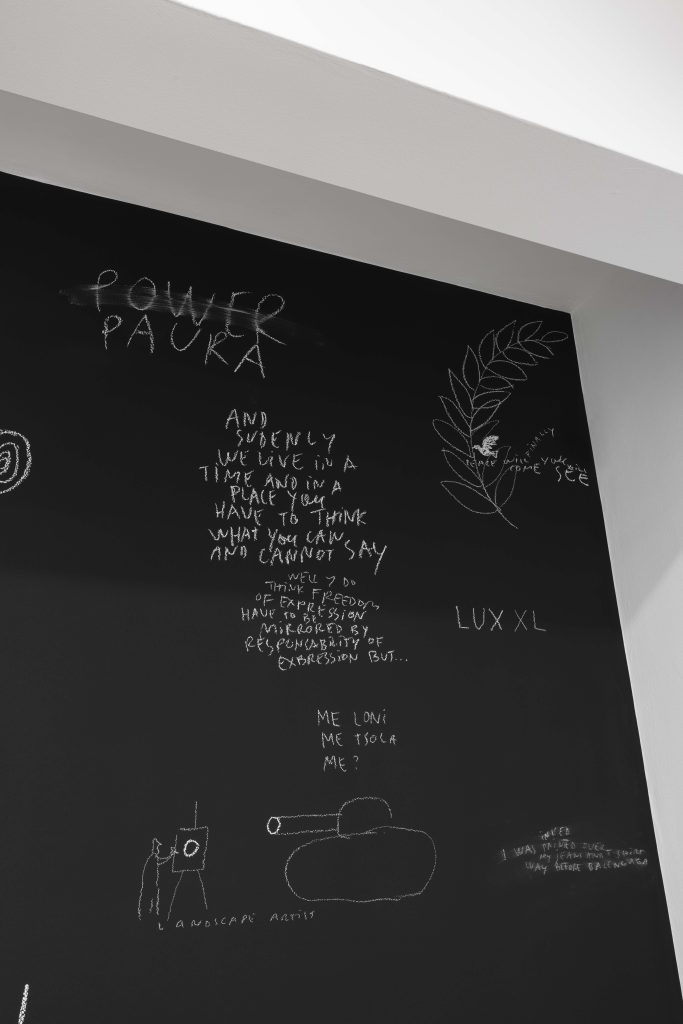 POWER
PAURA
AND
SUDENLY
WE LIVE IN A
TIME AND IN A
PLACE YOU
HAVE TO THINK
WHAT YOU CAN
AND CANNOT SAY
WELL Y DO
THINK FREEDOM
OF EXPRESSION
HAVE TO BE
MIRRORED BY
RESPONCABRITY OF
EXBRESSION BUT...
FINALLY
PEACE WILL
COME YOU WILL
SEE
LUX XL
ME LONI
ME TSOLA
ME?
LANDSCAPE ARTIST
INKED
I WAS PAINED OVER
MY JEANS AND T SHIRT
WAY BEFORE BALENCIAGA